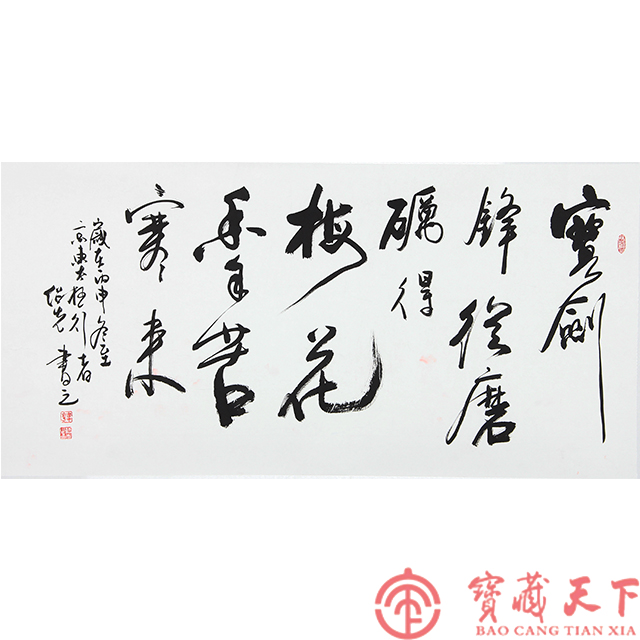 寶劍
鋒從磨
礪得
梅花
香自苦
寒來
歲在丙申冬至
書之
寶藏天下
BAO CANG TIAN XIA